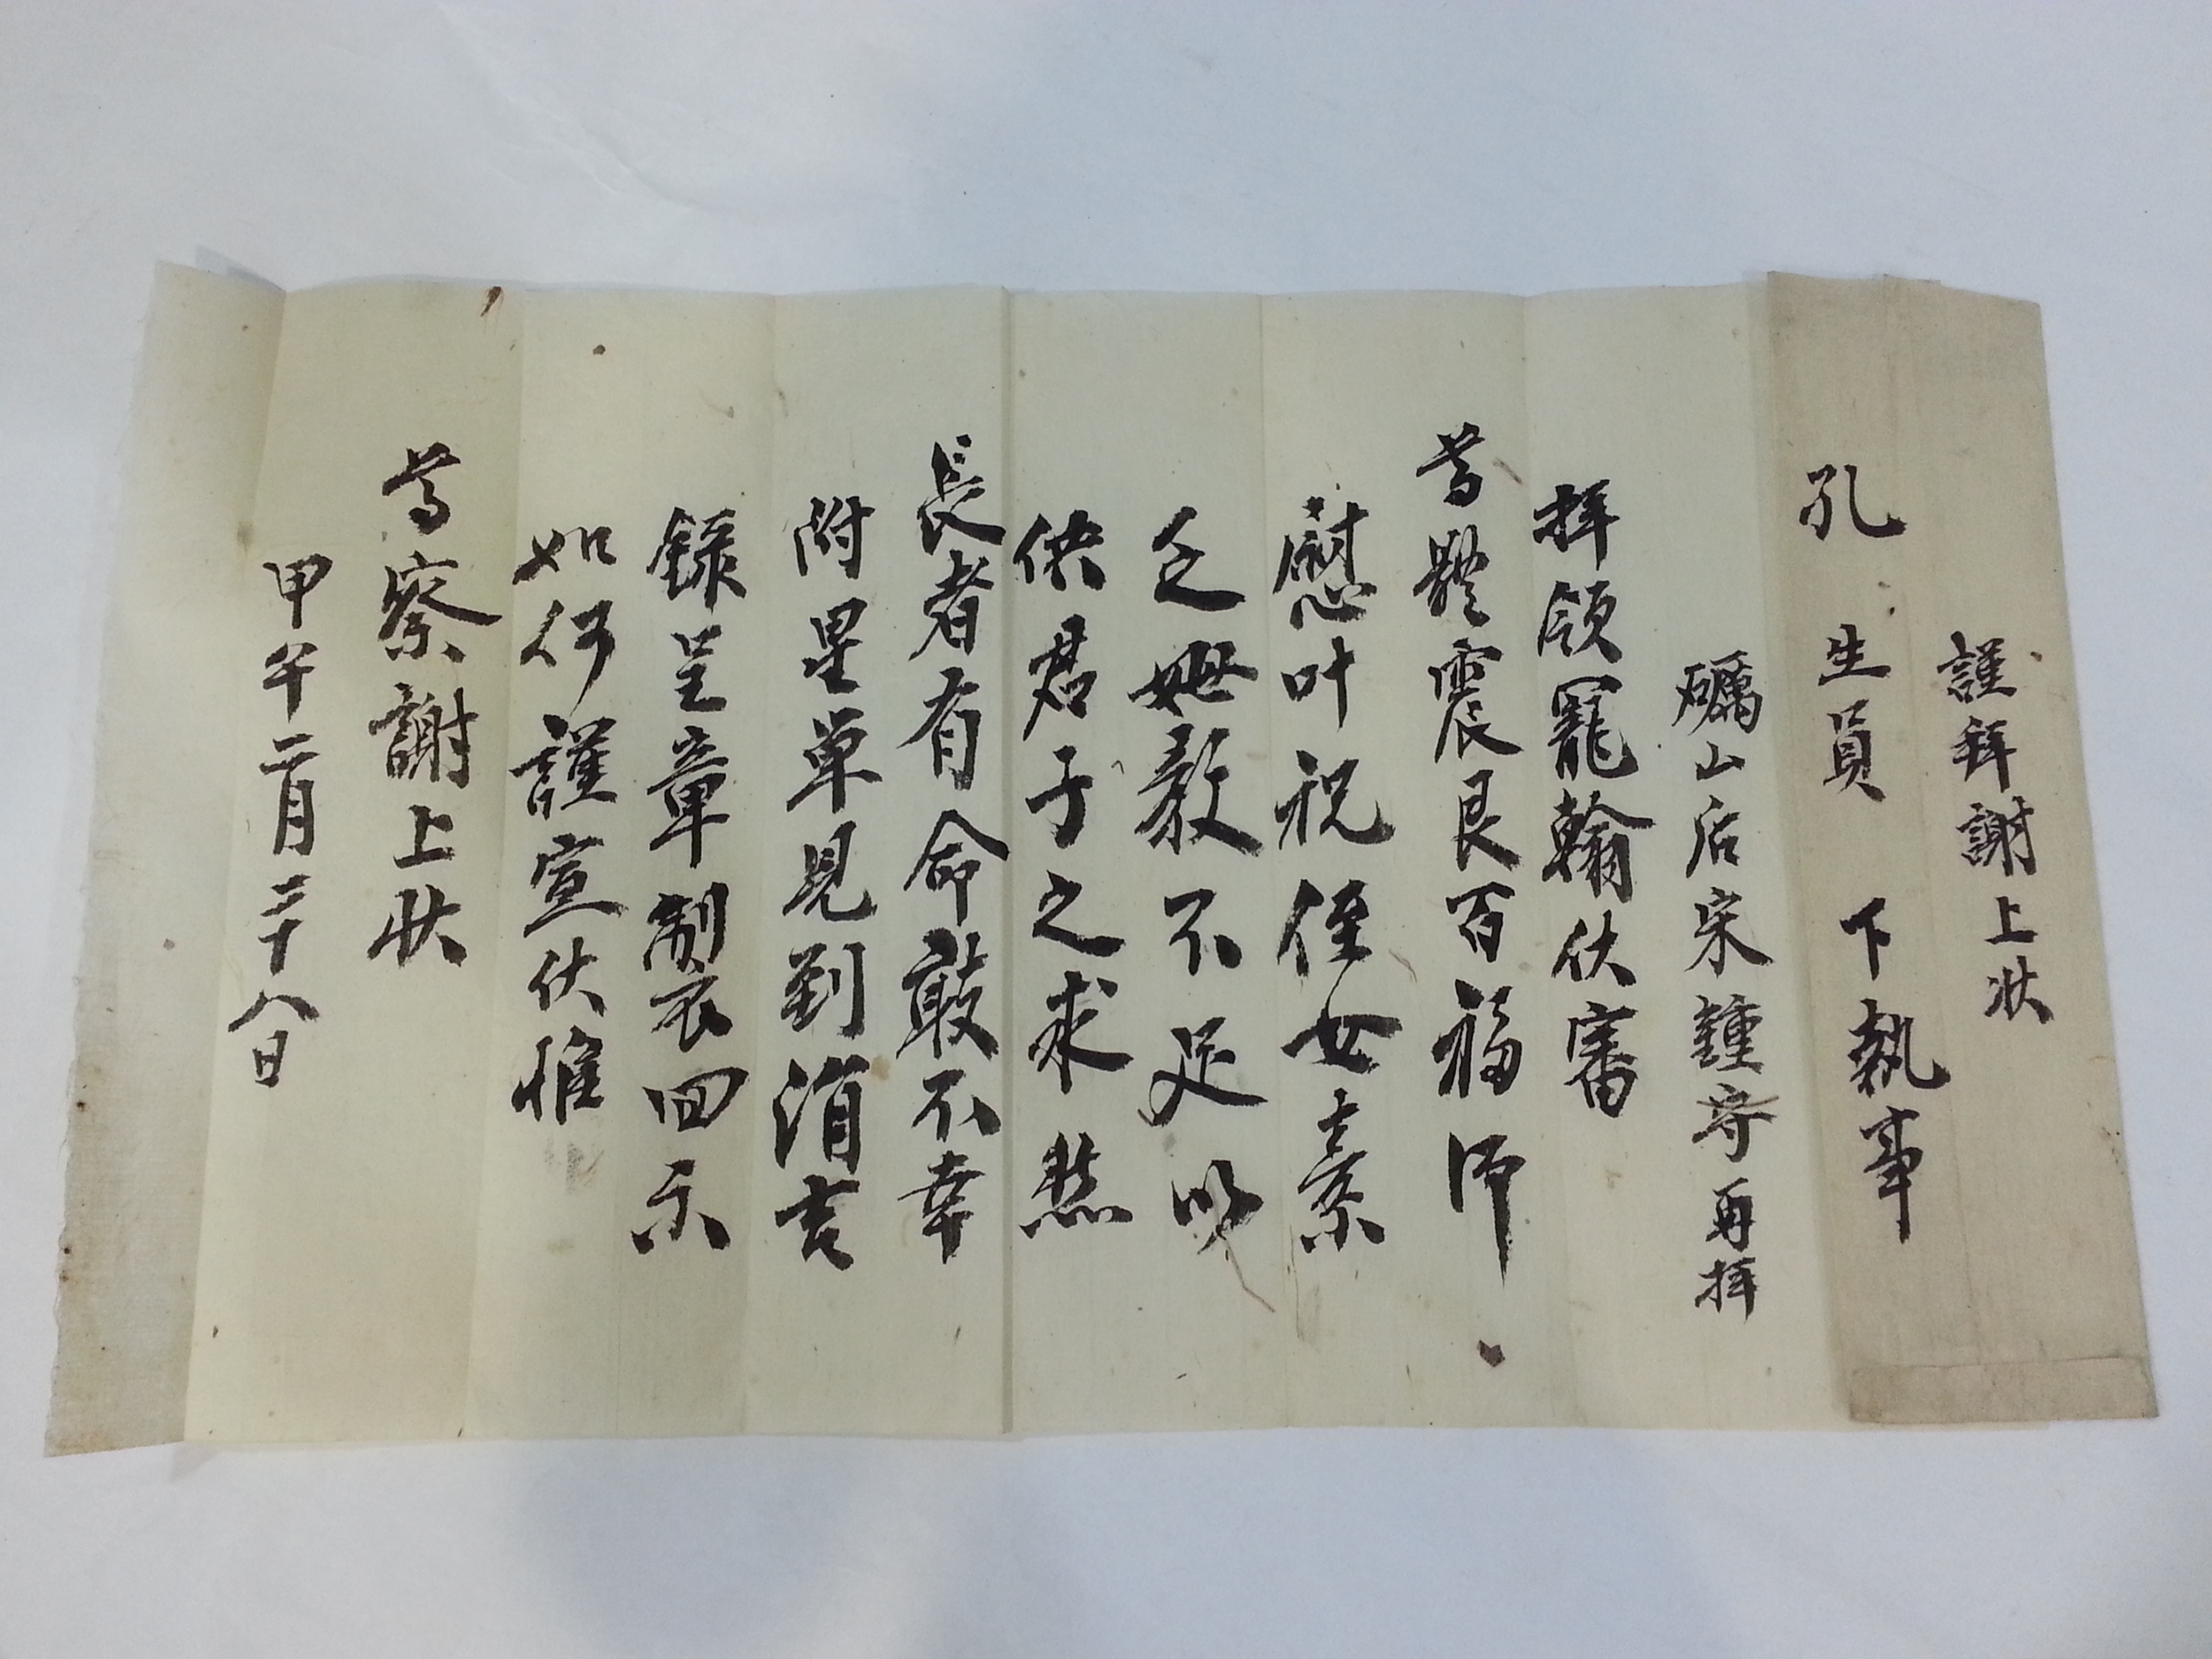 謹拜謝上狀
孔 生員 下執事
礪山后宋鍾 再拜
拝領寵翰伏審
尊體震艮百福 
慰叶祝侄女素
乏姆教不足以
供君子之求然
長者有命敢不幸
附星单見到涓吉
錄呈章制衣回示
如何謹宣伏惟
尊察謝上狀
甲午二月二十八日